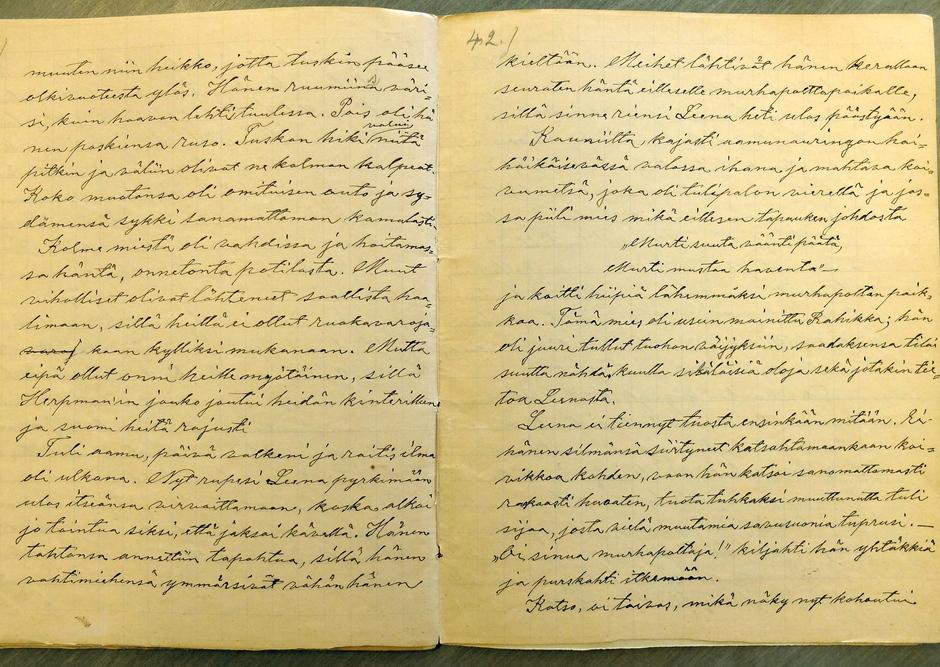 muuten niin heikko, jotta tuskin pääsee
olkivuoteesta ylös. Hänen ruumiinsa väri-
si, kuin haavan lehti tuulessa. Pois oli hä
nen poskiensa ruso. Tuskan hiki valui niitä
pitkin ja väliin olivat ne kalman kalpeat.
Koko muotonsa oli omituisen outo ja sy-
dämensä sykki sanamattoman kamalasti.
Kolme miestä oli vahdissa ja hoitamas-
sa häntä, onnetonta potilasta. Muut
viholliset olivat lähteneet saallista haa-
limaan, sillä heillä ei ollut ruokavaroja
varoj kaan kylliksi mukanaan. Mutta
eipä ollut onni heille myötäinen, sillä
Herpman'in jouko joutui heidän kinterillens
ja suomi heitä rajusti
Tuli aamu, päivä valkeni ja raitis ilma
oli ulkona. Nyt rupesi Leena pyrkimään
ulos itseänsä virvoittamaan, koska alkoi
jo tointua siksi, että jaksoi kävellä. Hänen
tahtonsa annettiin tapahtua, sillä hänen
vahtimiehensä ymmärsivät vähän hänen
42./
kieltään. Miehet lähtivät hänen kerallaan
seuraten häntä eilleselle murhapolttopaikalle,
sillä sinne riensi Leena heti ulos päästyään.
Kauniilta kajasti aamuauringon hoi-
häikäisevässä valossa ihana ja mahtava koi-
vumetsä, joka oli tulipalon vierellä ja jos-
sa piili mies mikä eillisen tapauksen johdosta
„Murti suuta, väänti päätä,
Murti mustaa haventa"—
ja koitti hiipiä lähemmäksi murhapolton paik-
kaa. Tämä mies oli usein mainittu Rahikka; hän
oli juuri tullut tuohon väijyksiin, saadaksensa tilai
suutta nähdä, kuulla sikäläisiä oloja sekä jotakin tie-
toa Leenasta.
Leena ei tiennyt tuosta ensinkään mitään. Ei-
hänen silmänsä siirtyneet katsahtamaankaan koi-
vikkoa kohden, vaan hän katsoi sanomattomasti
raskaasti huoaten, tuota tuhkaksi muuttunutta tuli
sijaa, josta vielä muutamia savusuonia tuprusi. —
„Oi sinua murhapolttaja!" kiljahti hän yhtäkkiä
ja purskahti itkemään.
Katso, oi taivas, mikä näky nyt kohoutui